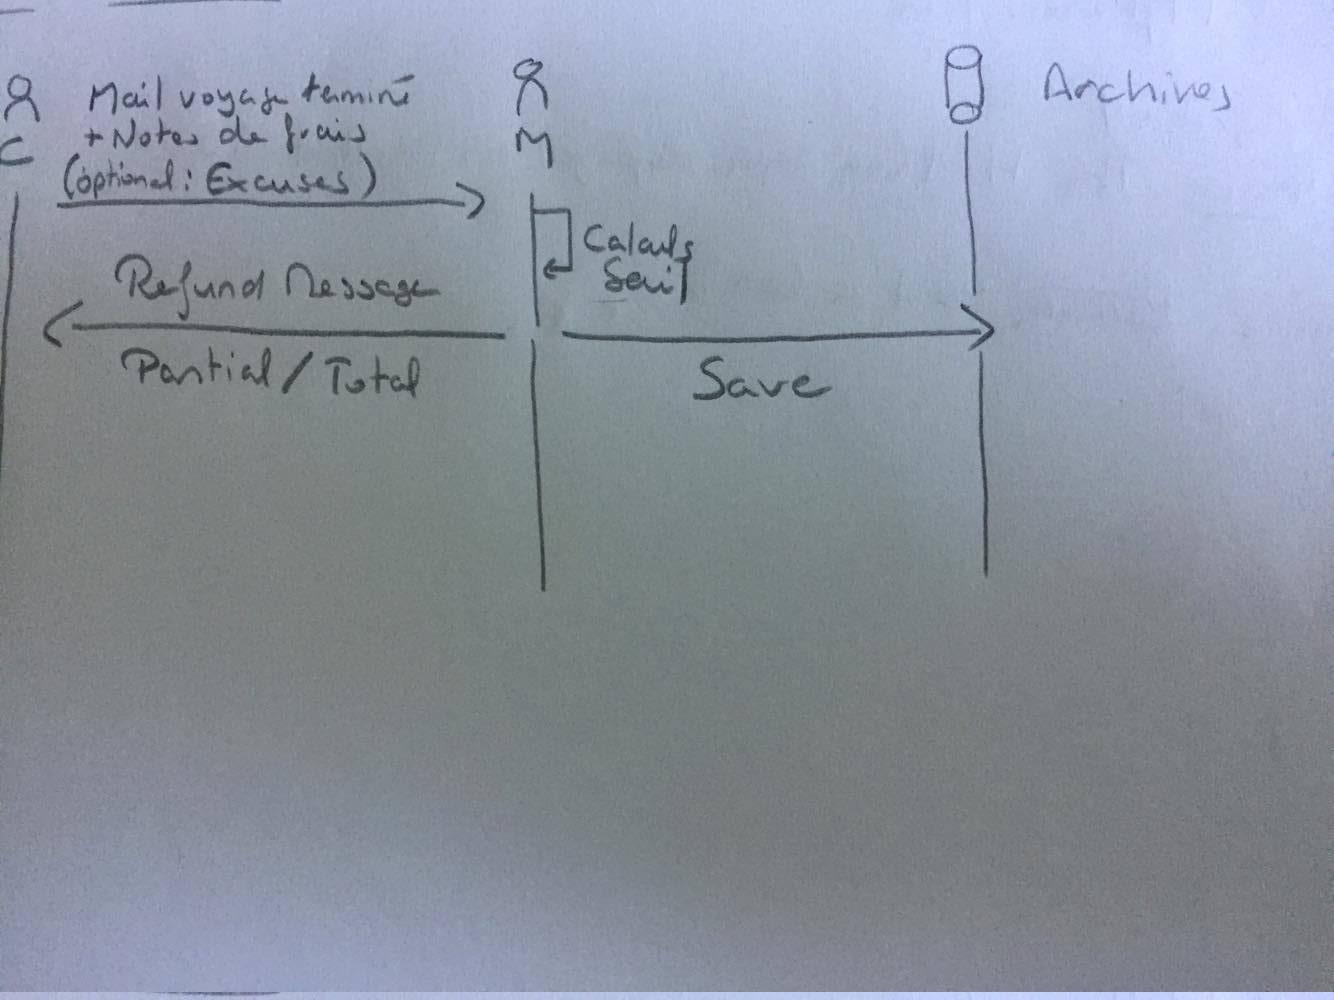 C
Mail voyage terminé
+ Notes de frais
(optional: Excuses)
M
Archives
Calculs
Seuil
Refund Message
Partial / Total
Save